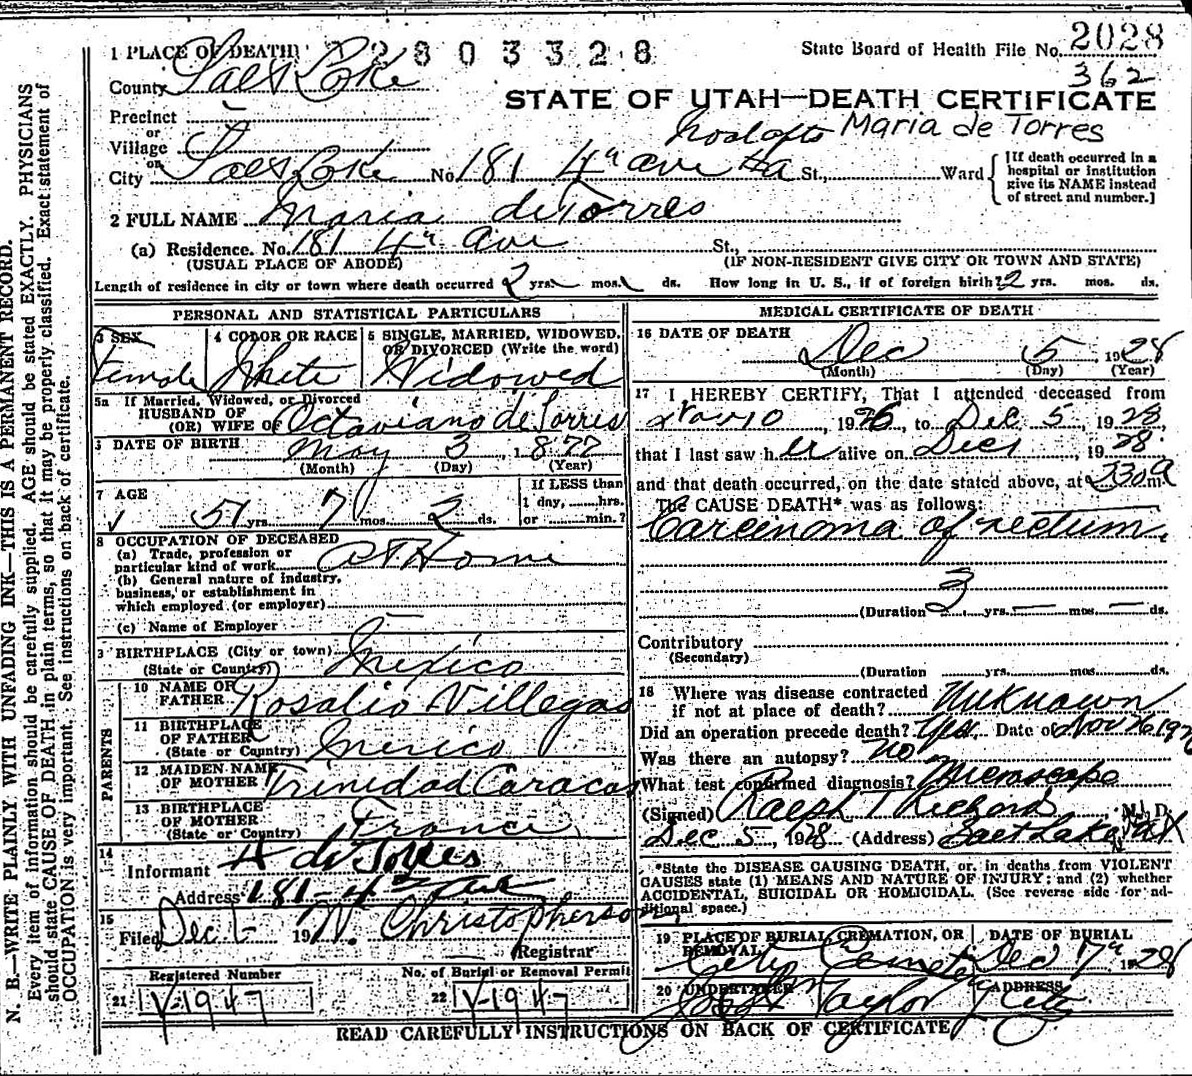 1 PLACE OF DEATH 2803328 State Board of Health File No. 2028
County Salt Lake 362
STATE OF UTAH—DEATH CERTIFICATE
Precinct –
or Maria de Torres
Village
or
City Salt Lake No. 181 4th ave St., Ward
[If death occurred in a hospital or institution give its NAME instead of street and number.]
2 FULL NAME Maria de Torres
(a) Residence. No. 181 4th ave St.,
(USUAL PLACE OF ABODE) (IF NON-RESIDENT GIVE CITY OR TOWN AND STATE)
Length of residence in city or town where death occurred 2 yrs. mos. ds. How long in U. S., if of foreign birth? 2 yrs. mos. ds.
PERSONAL AND STATISTICAL PARTICULARS
3 SEX 4 COLOR OR RACE 5 SINGLE, MARRIED, WIDOWED, OR DIVORCED (Write the word)
Female White Widowed
5a If Married, Widowed, or Divorced
HUSBAND OF
(OR) WIFE OF Octaviano de Torres
DATE OF BIRTH May 3, 1877
(Month) (Day) (Year)
7 AGE If LESS than
1 day, hrs.
51 yrs. 7 mos. 2 ds. or min.?
8 OCCUPATION OF DECEASED
(a) Trade, profession or
particular kind of work At Home
(b) General nature of industry,
business, or establishment in
which employed (or employer)
(c) Name of Employer –
9 BIRTHPLACE (City or town)
(State or Country) Mexico
PARENTS
10 NAME OF
FATHER Rosalio Villegas
11 BIRTHPLACE
OF FATHER
(State or Country) Mexico
12 MAIDEN NAME
OF MOTHER Trinidad Caracas
13 BIRTHPLACE
OF MOTHER
(State or Country) France
14
Informant de Torres
Address 181-4th Ave
15
Filed Dec 19 N. Christopherson,
Registrar
Registered Number No. of Burial or Removal Permit
21 V-1947 22 V-1947
MEDICAL CERTIFICATE OF DEATH
16 DATE OF DEATH
Dec 5 1928
(Month) (Day) (Year)
17 I HEREBY CERTIFY, That I attended deceased from
Nov 10, 1926, to Dec 5, 1928,
that I last saw her alive on Dec 1, 1928.
and that death occurred, on the date stated above, at 230 a m.
The CAUSE DEATH* was as follows:
Carcinoma of rectum.
(Duration 3 yrs. — mos. — ds.
Contributory
(Secondary)
(Duration yrs. mos. ds.
18 Where was disease contracted
if not at place of death? Unknown
Did an operation precede death? Yes. Date of Nov 16 192
Was there an autopsy? no
What test confirmed diagnosis? Microscope
(Signed) Ralph T Richards M. D.
Dec 5, 1928 (Address) Salt Lake
*State the DISEASE CAUSING DEATH, or, in deaths from VIOLENT
CAUSES state (1) MEANS AND NATURE OF INJURY; and (2) whether
ACCIDENTAL, SUICIDAL OR HOMICIDAL. (See reverse side for additional space.)
19 PLACE OF BURIAL, CREMATION, OR REMOVAL DATE OF BURIAL
City Cemetery Dec 7th, 1928
20 UNDERTAKER ADDRESS
Taylor City
READ CAREFULLY INSTRUCTIONS ON BACK OF CERTIFICATE
N. B.—WRITE PLAINLY WITH UNFADING INK—THIS IS A PERMANENT RECORD.
Every item of information should be carefully supplied. AGE should be stated EXACTLY. PHYSICIANS
should state CAUSE OF DEATH in plain terms, so that it may be properly classified. Exact statement of
OCCUPATION is very important. See instructions on back of certificate.